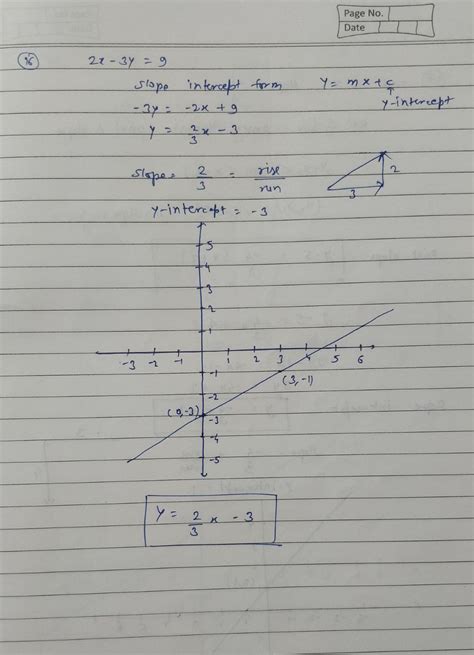 Page No.
Date
36
2x - 3y = 9
slope intercept form y = mx + c
y-intercept
-3y = -2x + 9
y = 2/3 x - 3
slope = 2/3 = rise/run
2
3
y-intercept = -3
5
4
3
2
1
-3 -2 -1 1 2 3 4 5 6
-1
(3, -1)
-2
(0, -3)
-3
-4
-5
y = 2/3 x - 3